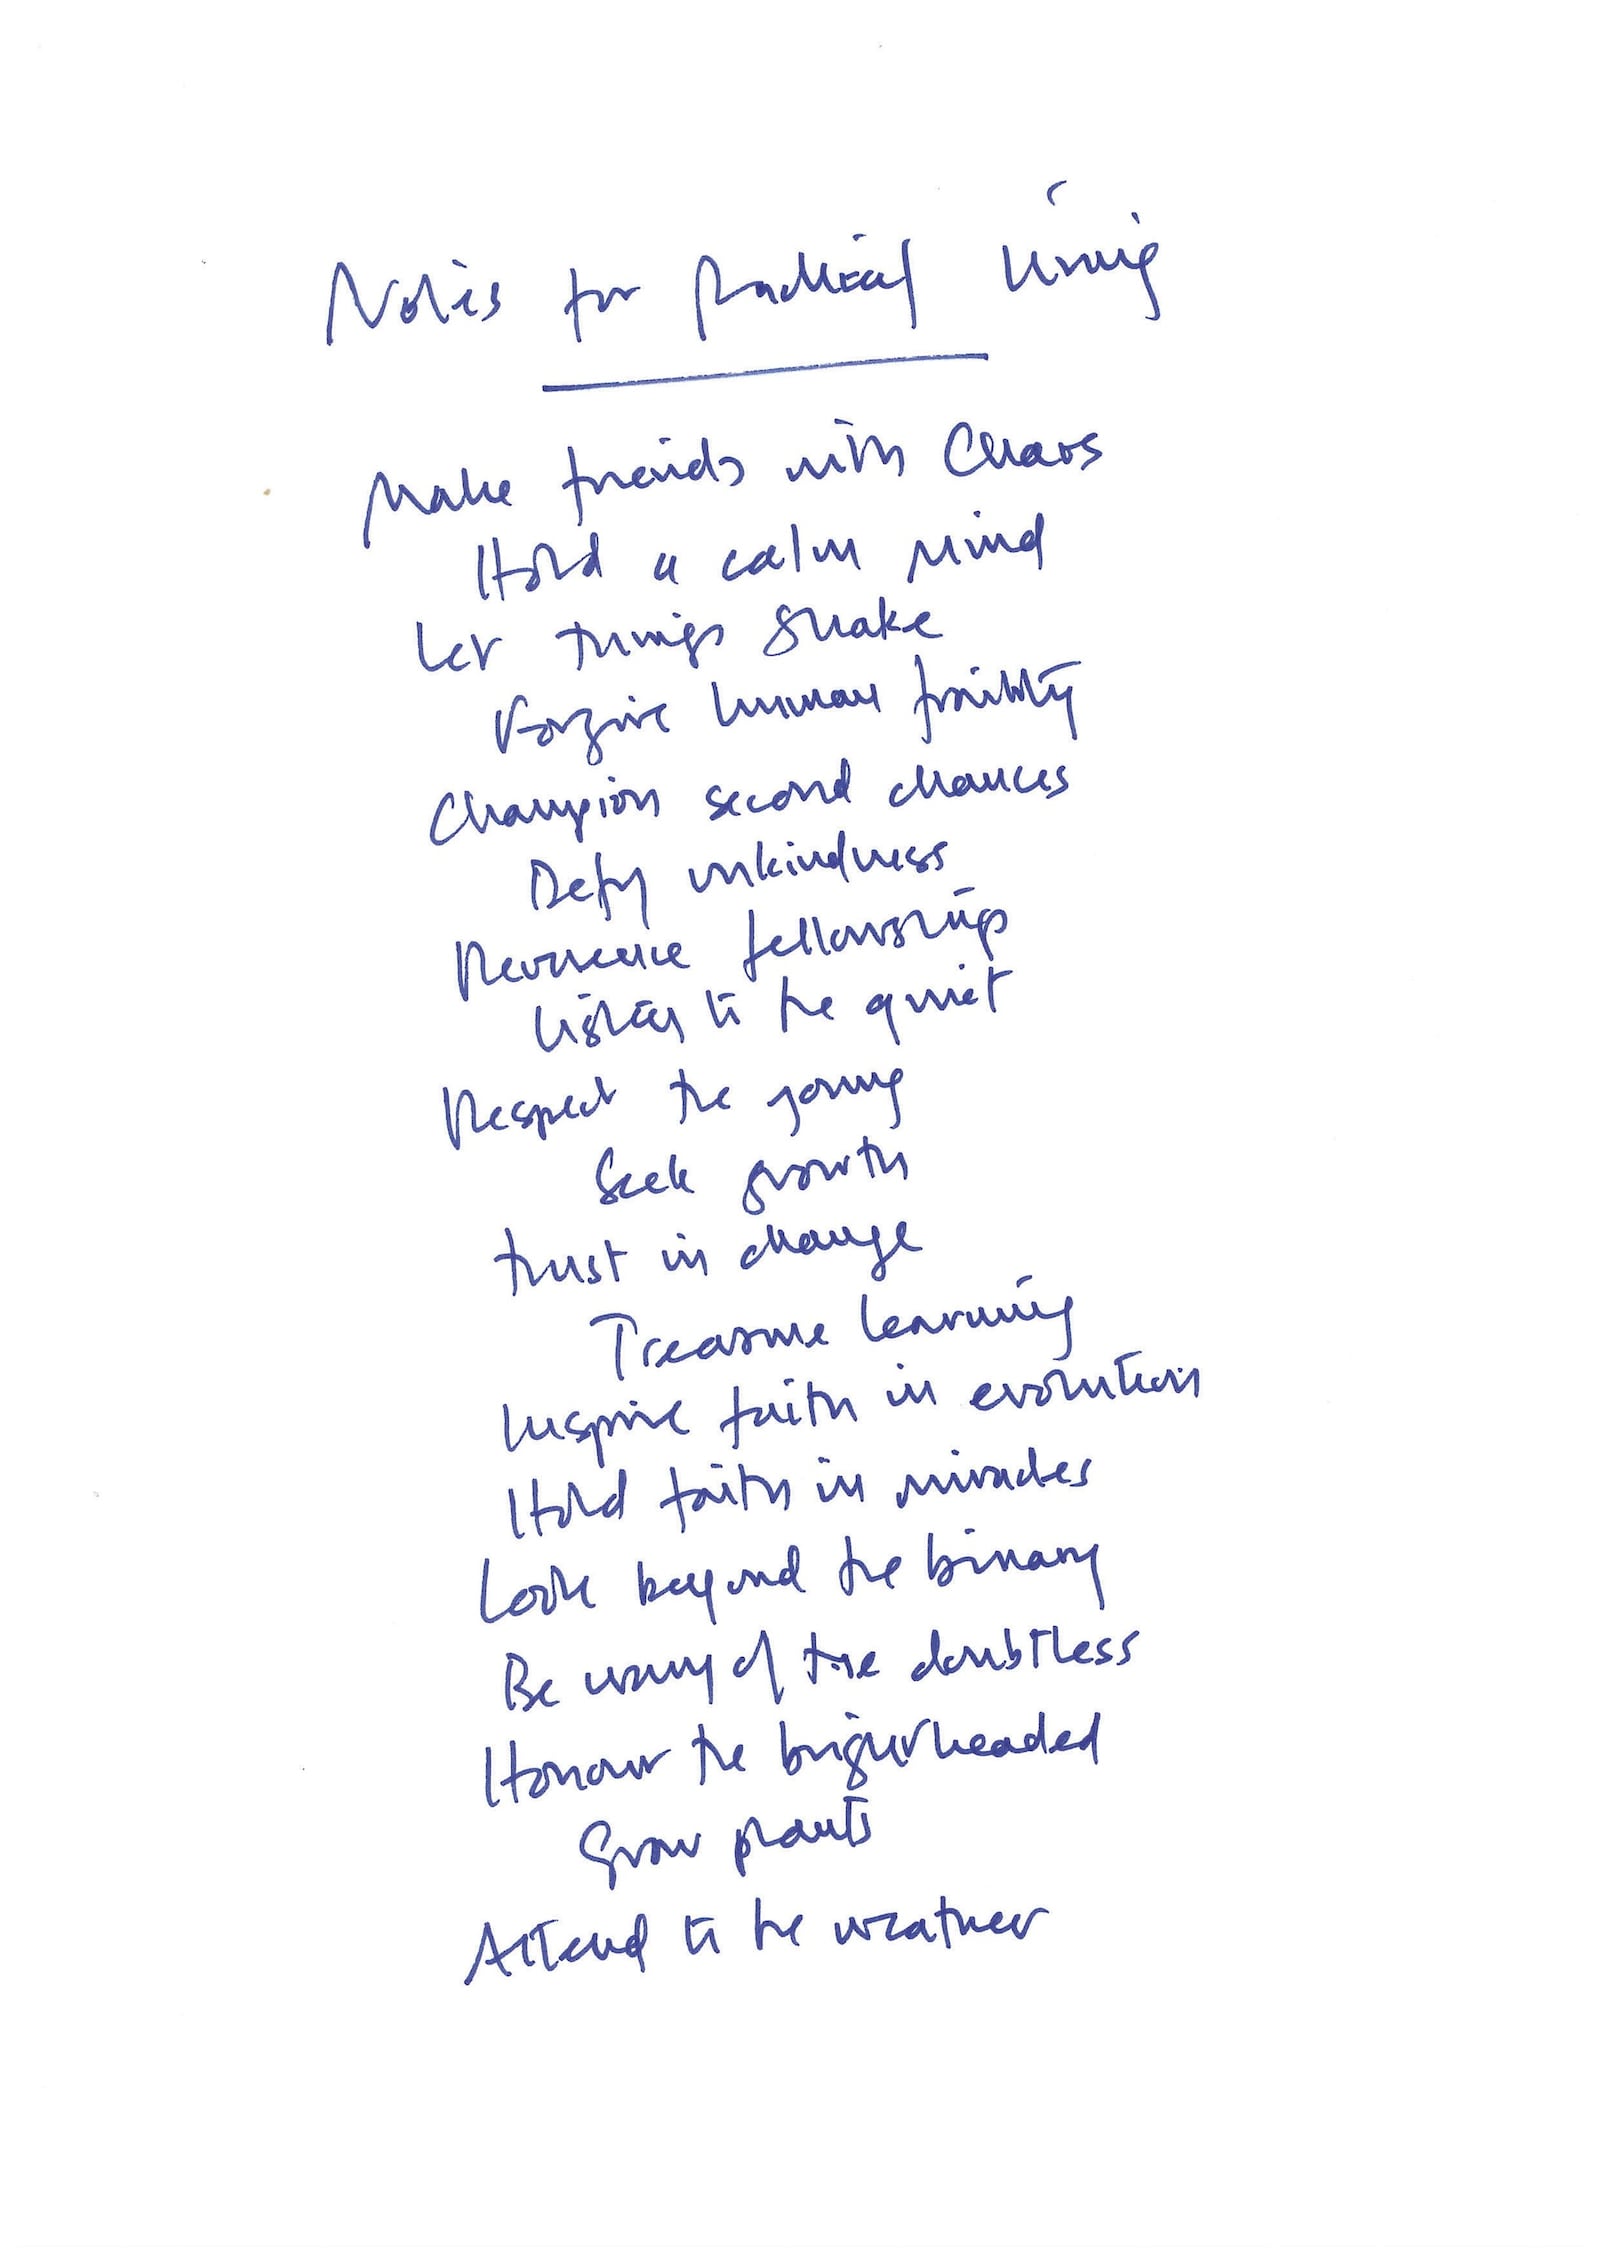 Notes for Radical living
Make friends with Chaos
Hold a calm mind
Let things shake
Forgive human frailty
Champion second chances
Defy unkindness
Reverence fellowship
Listen to the quiet
Respect the young
Seek growth
Trust in change
Treasure learning
Inspire faith in evolution
Hold faith in miracles
Look beyond the binary
Be wary of the doubtless
Honour the brightheaded
Grow plants
Attend to the weather